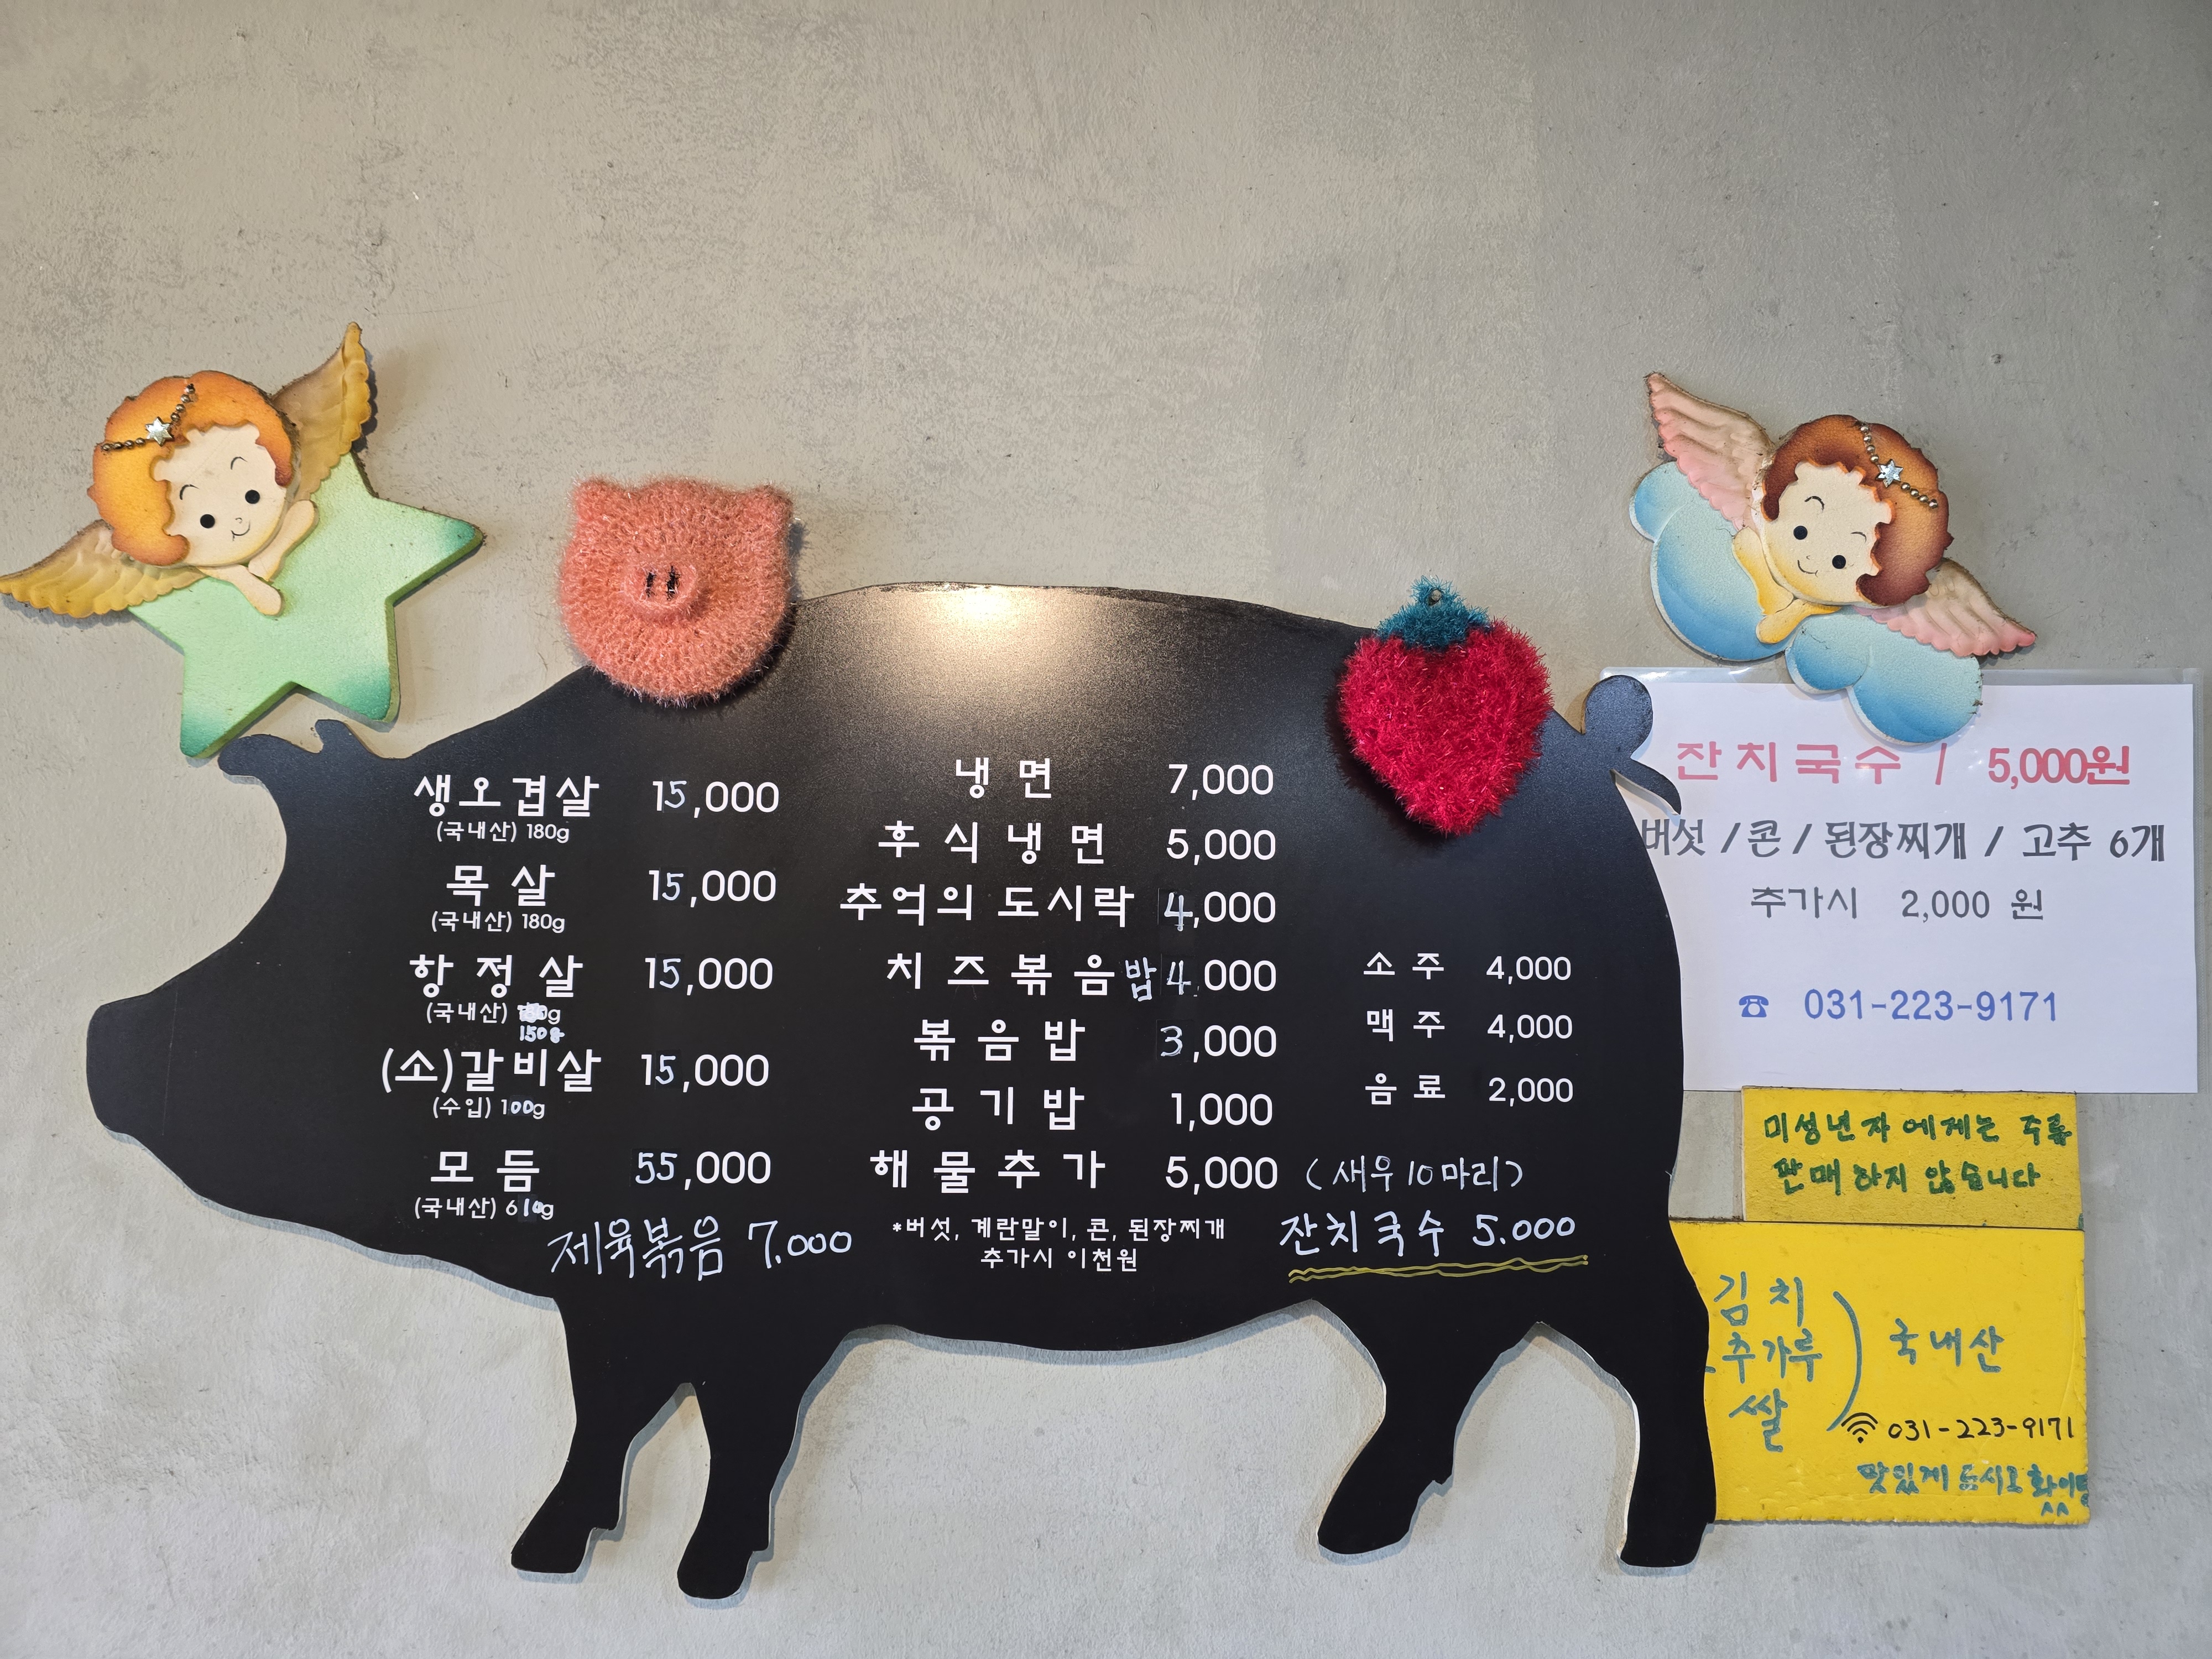 생오겹살 15,000
(국내산) 180g
목살 15,000
(국내산) 180g
항정살 15,000
(국내산)
150g
(소)갈비살 15,000
(수입) 100g
모듬 55,000
(국내산) 610g
제육볶음 7,000
냉면 7,000
후식냉면 5,000
추억의 도시락 4,000
치즈볶음밥 4,000
볶음밥 3,000
공기밥 1,000
해물추가 5,000 (새우 10마리)
*버섯, 계란말이, 콘, 된장찌개
추가시 이천원
소주 4,000
맥주 4,000
음료 2,000
잔치국수 5.000
잔치국수 / 5,000원
버섯 / 콘 / 된장찌개 / 고추 6개
추가시 2,000 원
☎ 031-223-9171
미성년자에게는 주류
판매하지 않습니다
김치
추가루
쌀
) 국내산
031-223-9171
맛있게